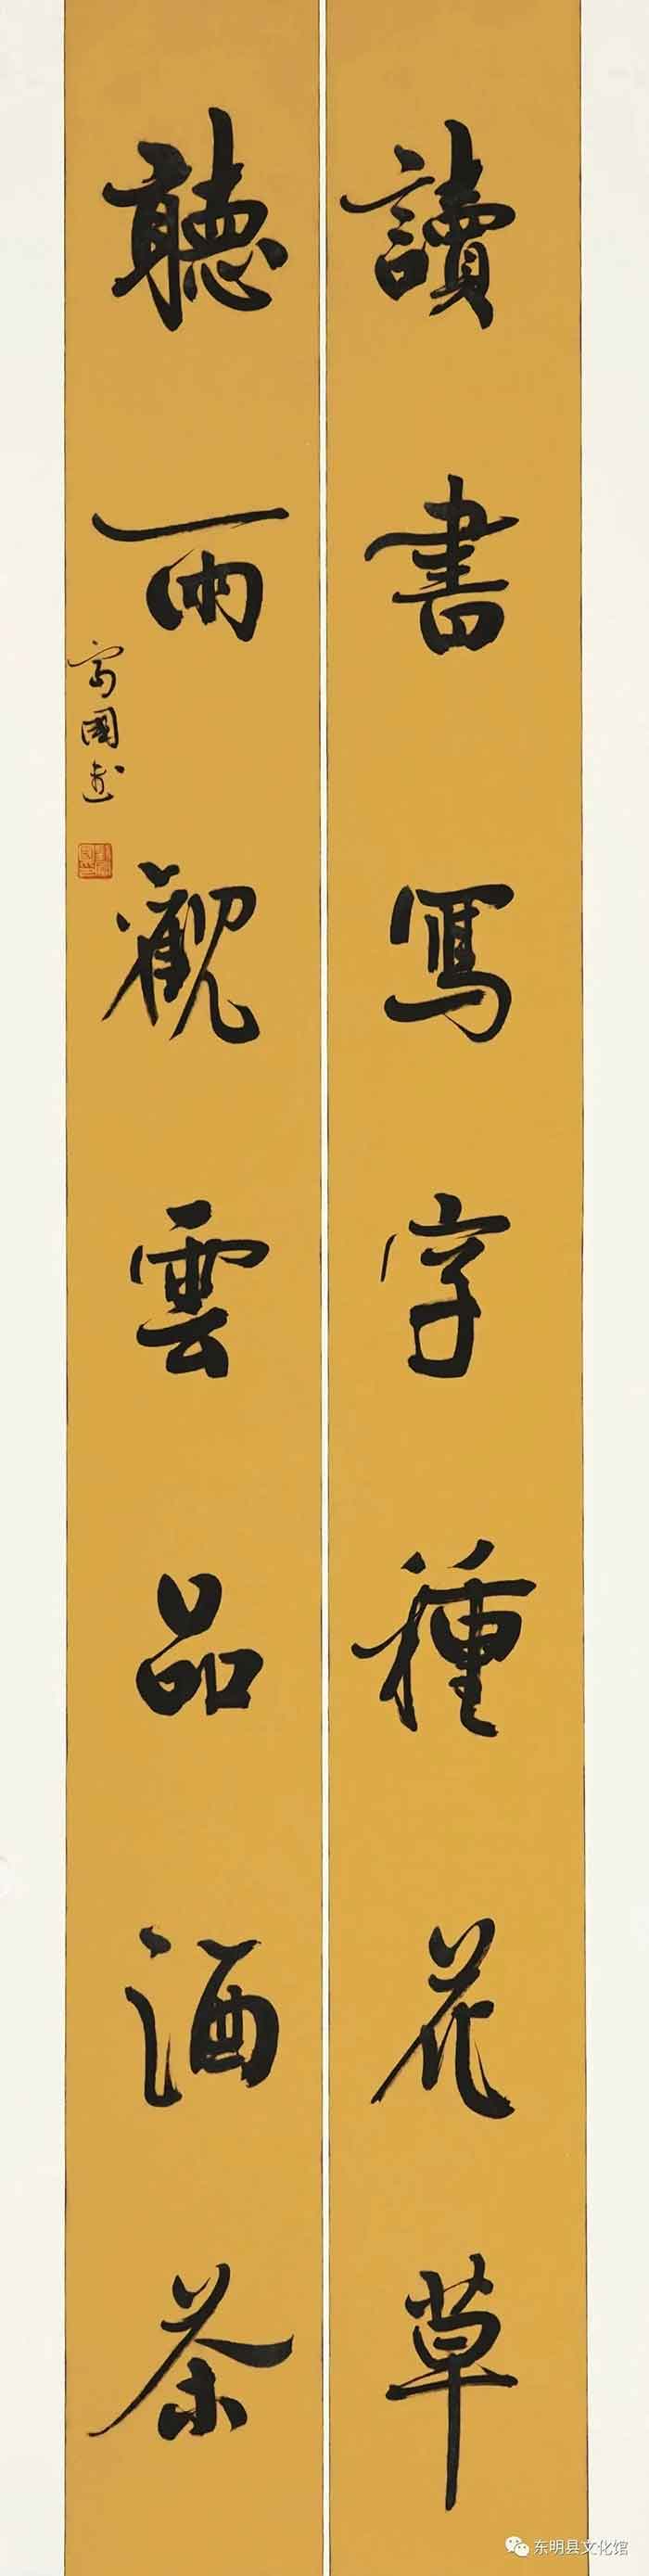 讀書寫字種花草
聽雨觀雲品酒茶
東明县文化馆